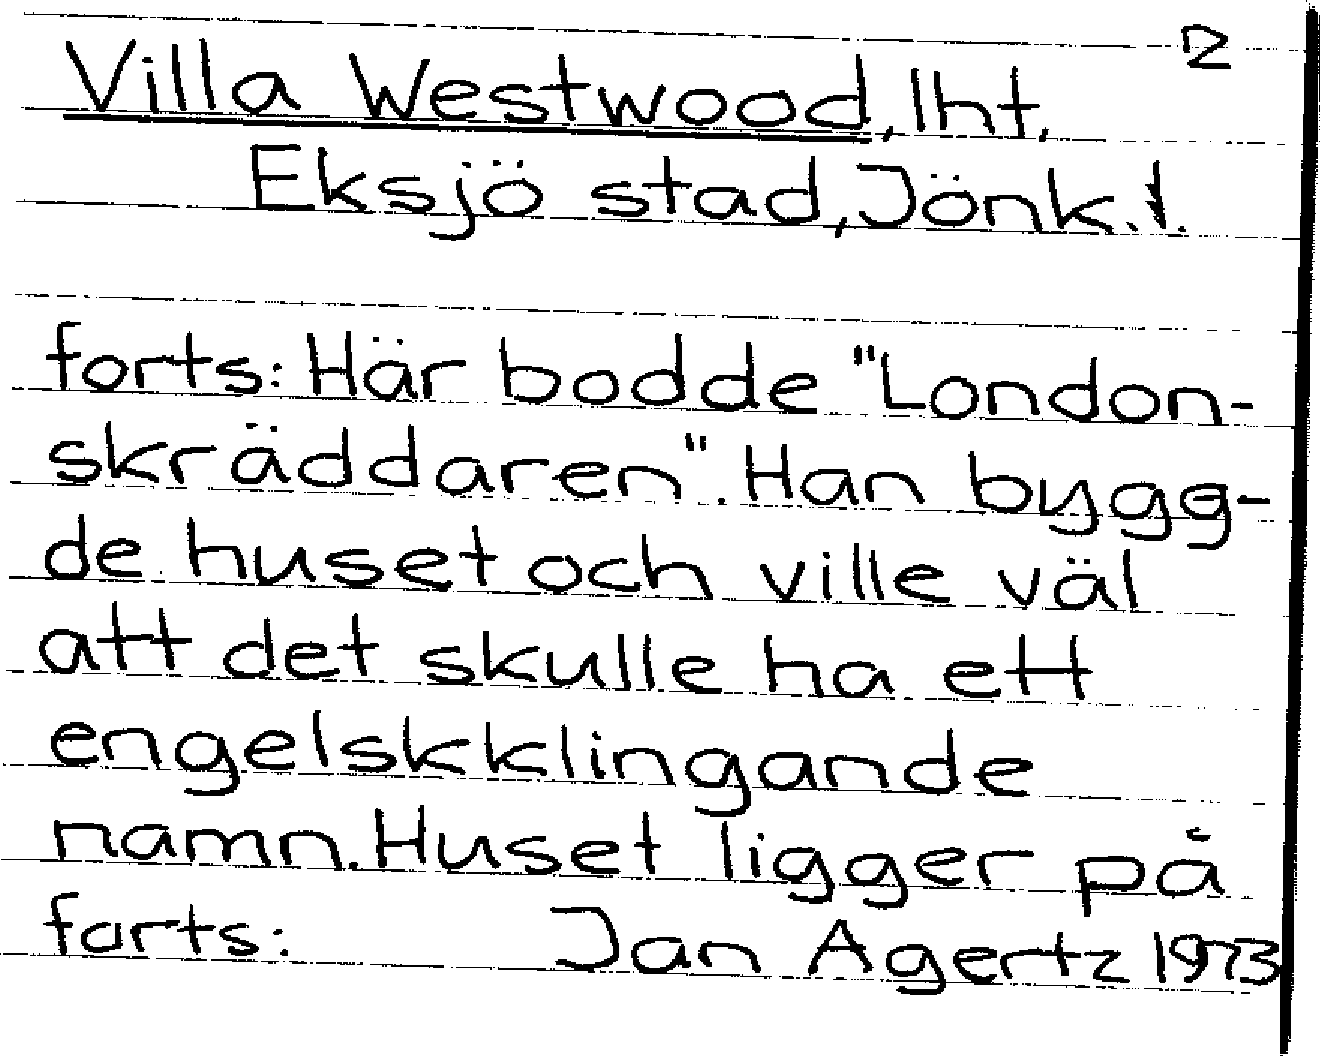 2
Villa Westwood, lht,
Eksjö stad, Jönk.l.
forts: Här bodde "London-
skräddaren". Han bygg-
de huset och ville väl
att det skulle ha ett
engelskklingande
namn. Huset ligger på
forts: Jan Agertz 1973